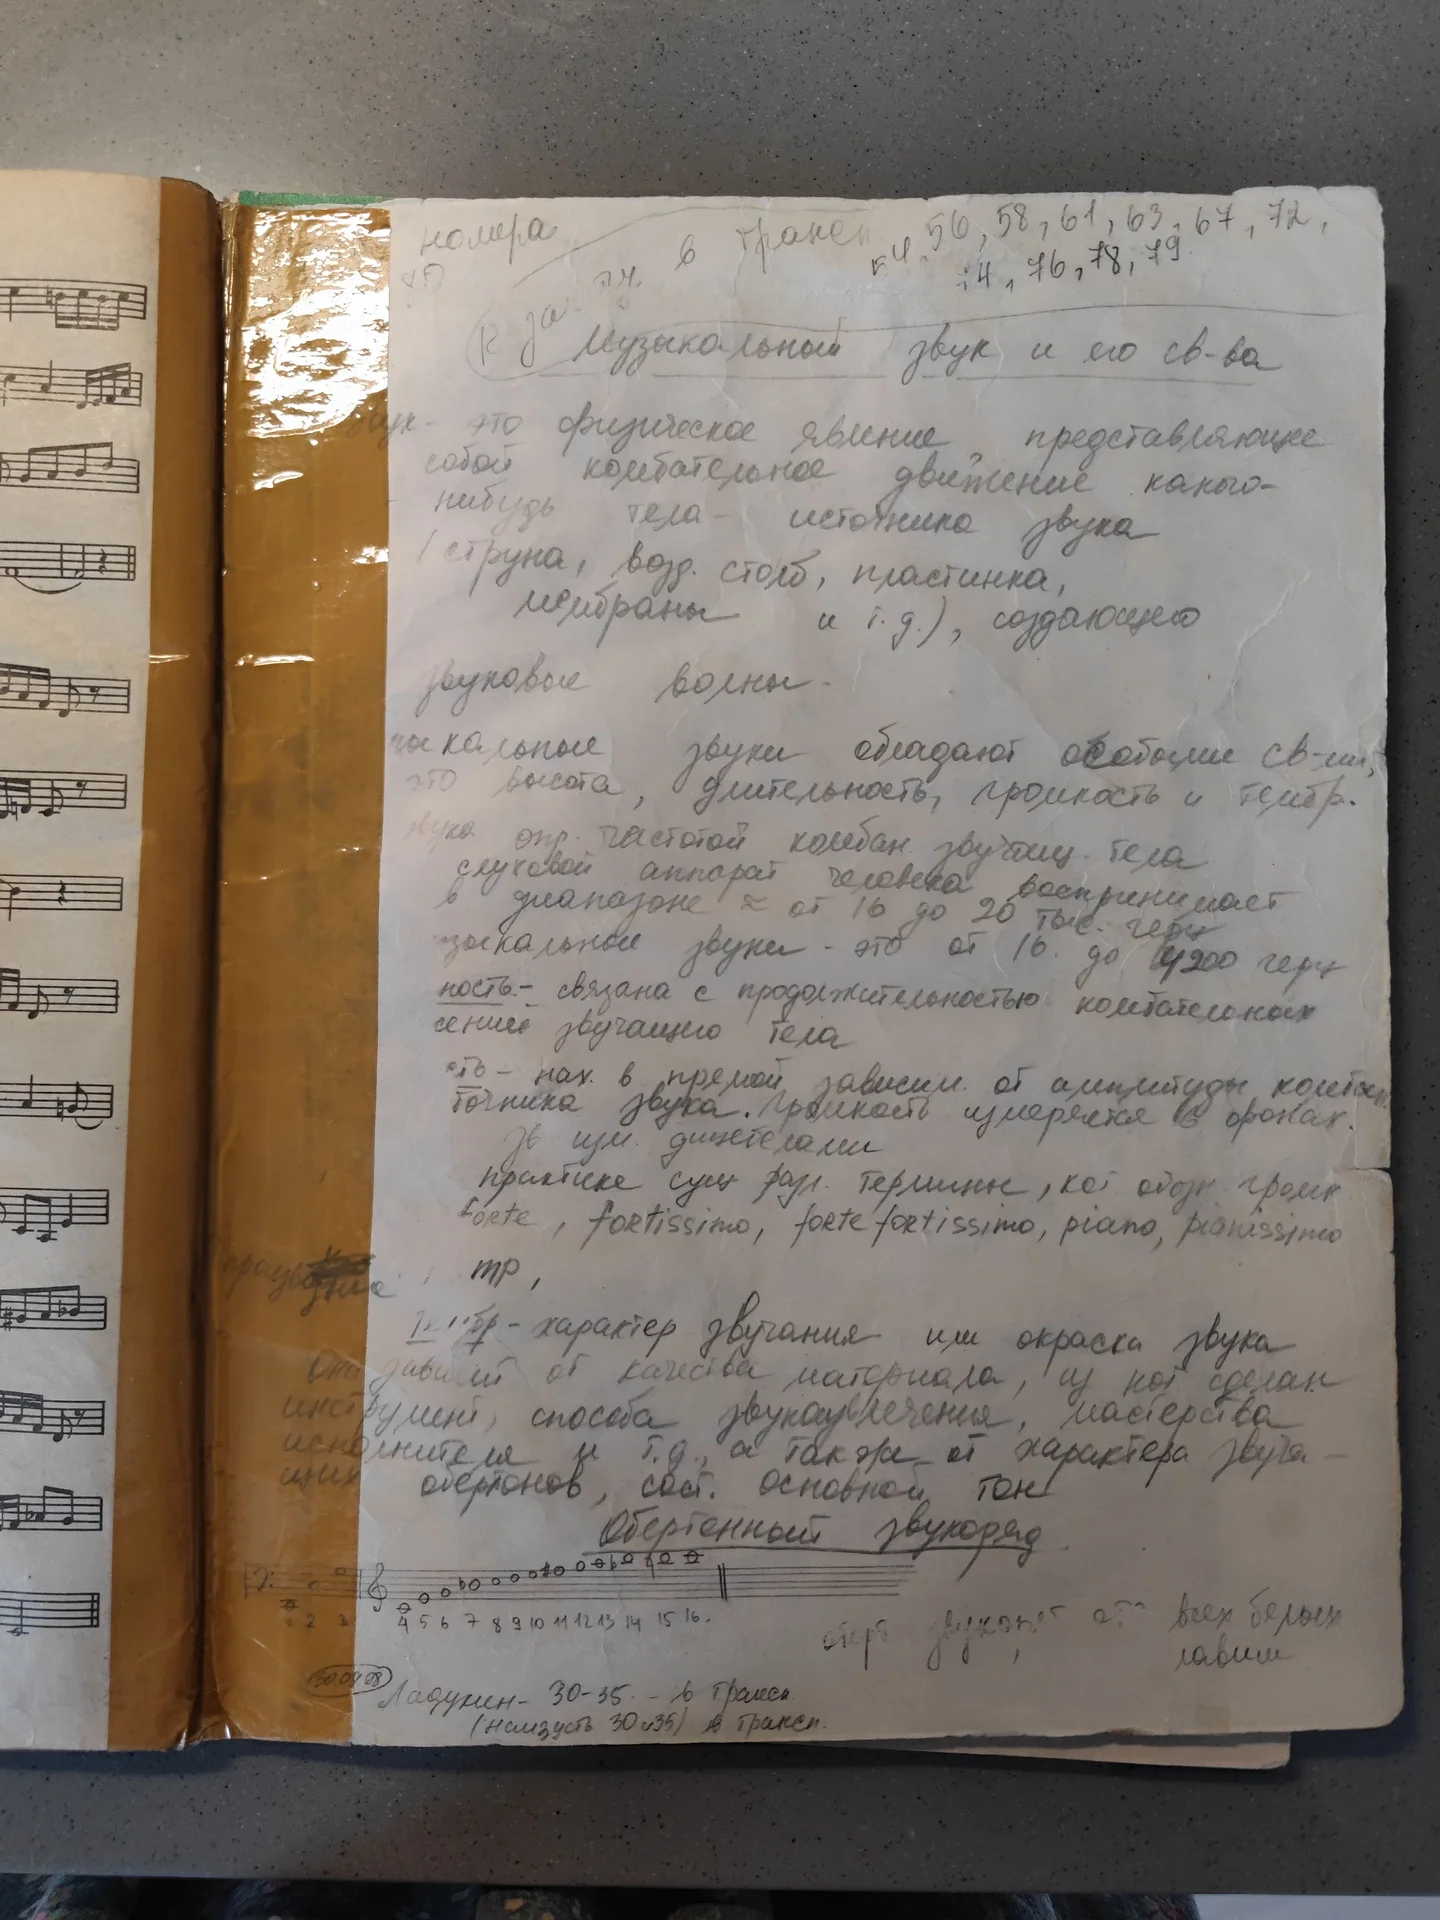 номера в трансп. 54, 56, 58, 61, 63, 67, 72,
76, 78, 79.
Музыкальный звук и его св-ва
звук - это физическое явление представляющие
собой колебательное движение какого-
нибудь тела - источника звука
(струна, возд. столб, пластинка,
мембраны и т.д.), создающего
звуковые волны.
зыкальные звуки обладают особыми св-ми,
это высота, длительность, громкость и тембр.
звука опр. частотой колебан. звучащ. тела
слуховой аппарат человека воспринимает
в диапазоне ≈ от 16 до 20 тыс. герц
зыкальные звуки - это от 16. до 4200 герц
ность - связана с продолжительностью колебательных
жений звучащего тела
сть - нах. в прямой зависим. от амплитуды колебан.
точника звука. Громкость измеряется в фонах.
зв изм. дицебелами
практике сущ разл. термины, кот обозн громк
forte, fortissimo, forte fortissimo, piano, pianissimo
mp,
Тембр - характер звучания или окраска звука
Она зависит от качества материала, из кот сделан
инструмент, способа звукоизвлечения, мастерства
исполнителя и т.д., а также от характера звуча-
щих обертонов, сост. основной тон
Обертонный звукоряд
2 3 4 5 6 7 8 9 10 11 12 13 14 15 16.
от всех белых
клавиш
30.09.98
Ладухин - 30-35 - в трансп.
(наизусть 30 и 35) в трансп.